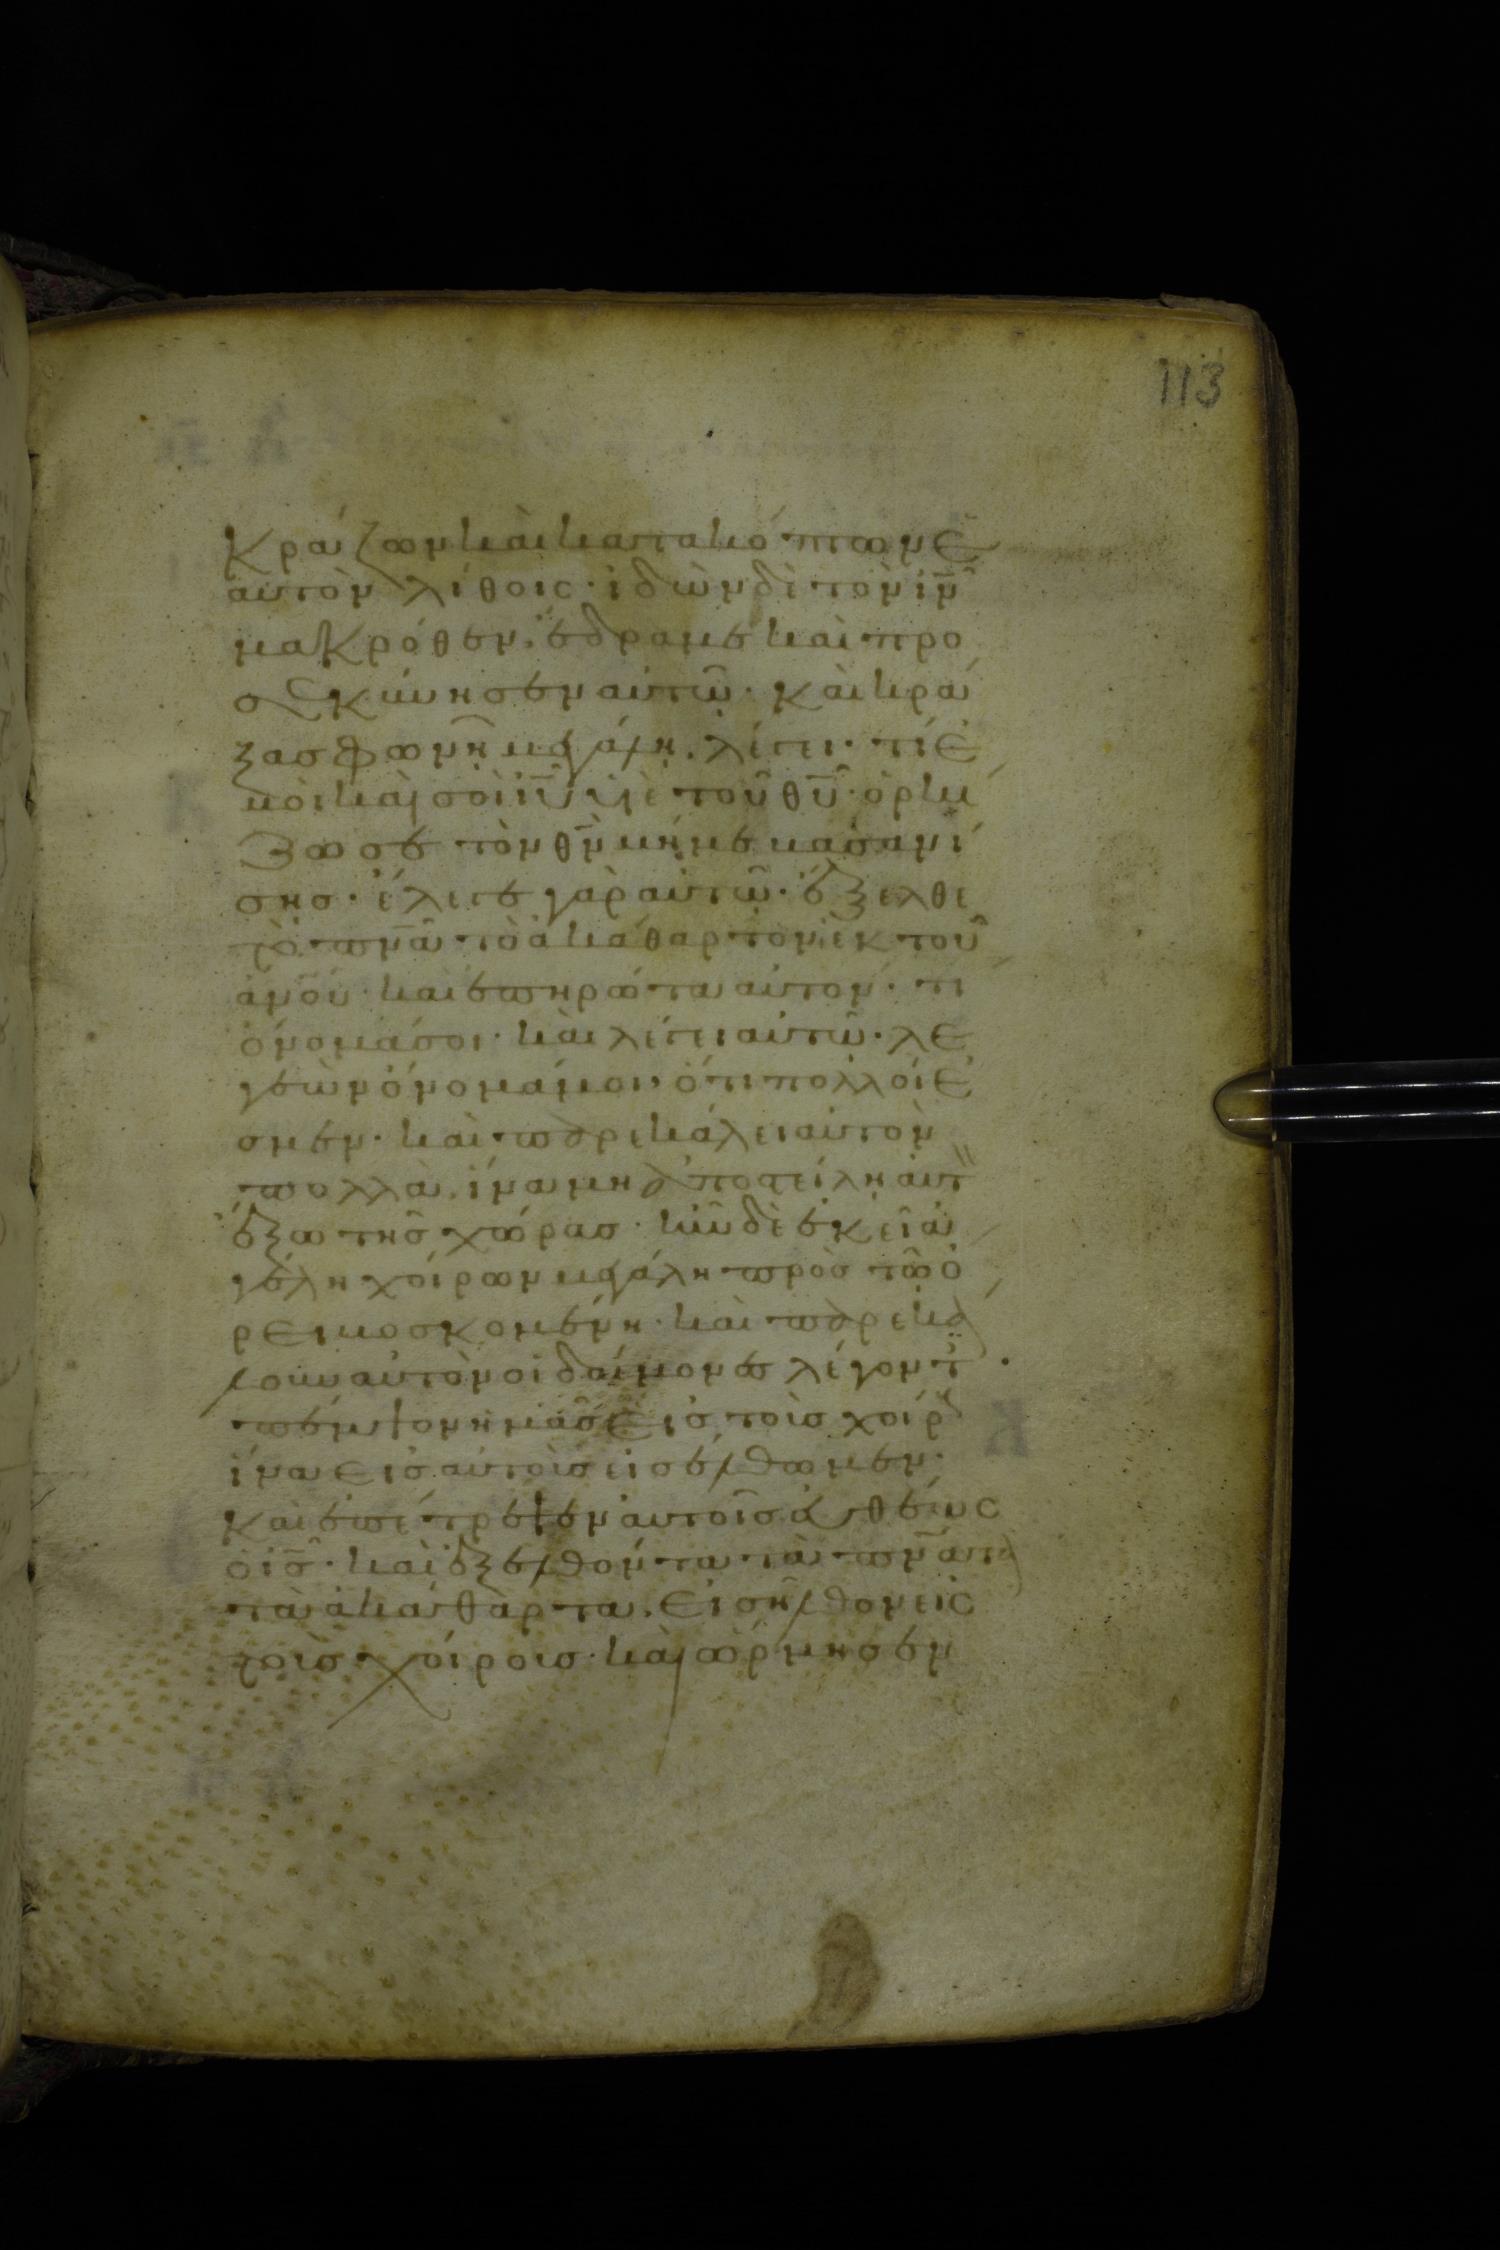 113
κράζων καὶ κατακόπτων ἐ
αυτὸν λίθοις· ἰδὼν δὲ τὸν ἰν̅
μακρόθεν, ἔδραμε καὶ προ
σεκύνησεν αὐτῶ· καὶ κρά
ξας φωνῆ μεγάλη, λέγει· τί ἐ
μοὶ καὶ σοὶ ἰυ̅ υἱὲ τοῦ θυ̅· ὁρκί
ζω σε τὸν θν̅ μή με βασανί
σης· ἔλεγε γὰρ αὐτῶ· ἔξελθε
τὸ πνα̅ τὸ ἀκάθαρτον ἐκ τοῦ
ἀνου̅· καὶ ἐπηρώτα αὐτόν· τί
ὄνομά σοι· καὶ λέγει αὐτῶ· λε
γεὼν ὄνομά μοι, ὅτι πολλοί ἐ
σμεν· καὶ παρεκάλει αὐτὸν
πολλὰ, ἵνα μη ἀποστείλη αὐτ
ἔξω τῆς χώρας· ἦν δὲ ἐκεῖ ἀ
γέλη χοίρων μεγάλη πρὸς τῶ ὄ
ρει βοσκομένη· καὶ παρεκά
λουν αὐτὸν οἱ δαίμονες λέγοντ
πέμψον ἡμᾶς εἰς τοὺς χοίρ
ἵνα εἰς αὐτοὺς εἰσέλθωμεν·
Καὶ ἐπέτρεψεν αὐτοῖς εὐθέως
ὁ ις̅· καὶ ἐξελθόντα τὰ πνα̅τα
τὰ ἀκάθαρτα, εἰσῆλθον εἰς
τοὺς χοίρους· καὶ ὥρμησεν